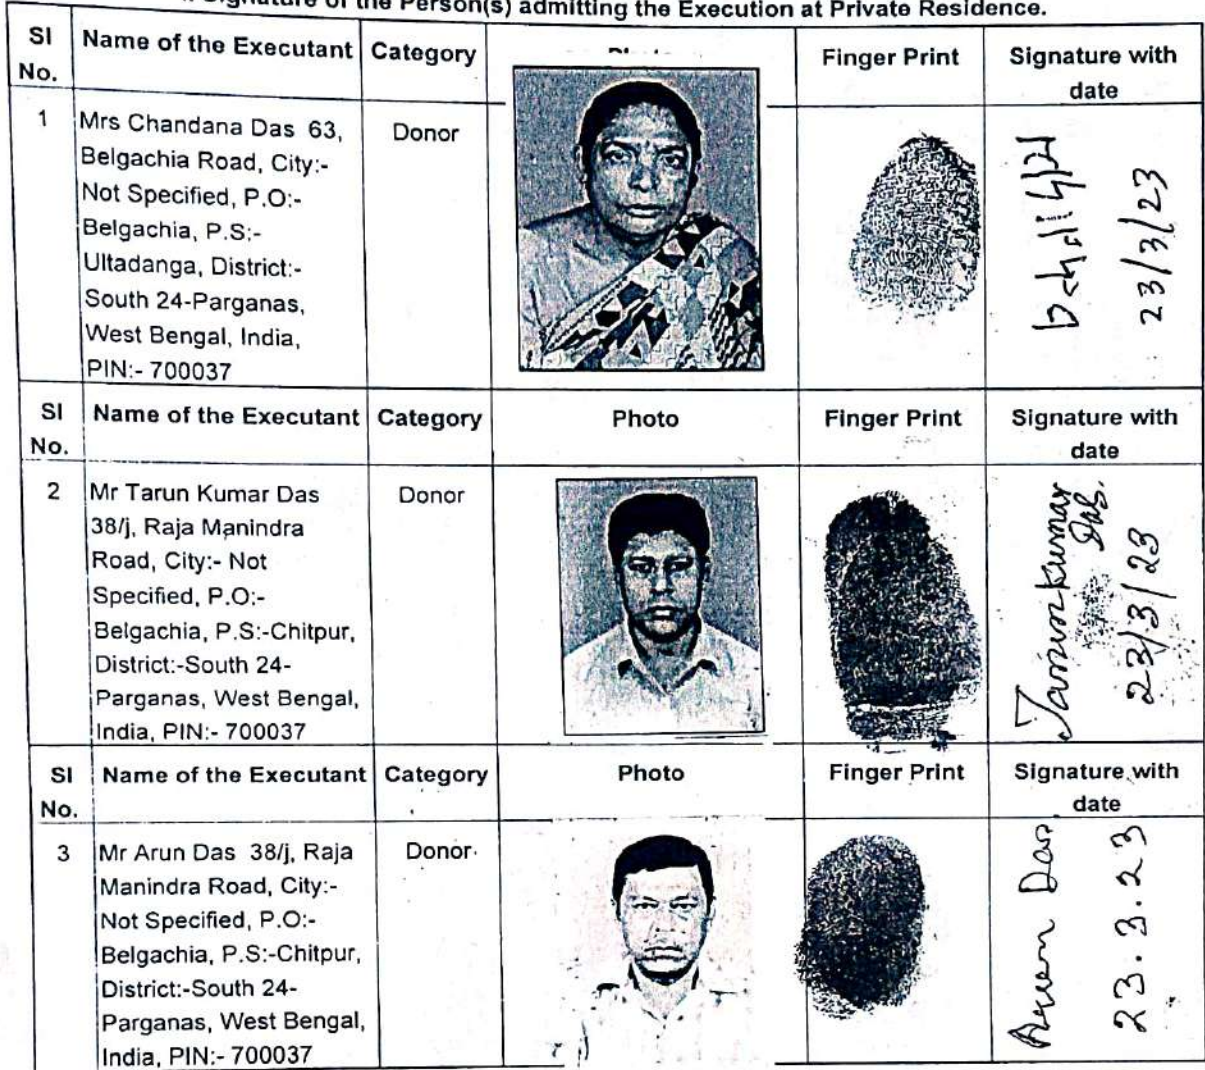 Signature of the Person(s) admitting the Execution at Private Residence.
Sl No. Name of the Executant Category Finger Print Signature with date
1 Mrs Chandana Das 63, Donor
Belgachia Road, City:-
Not Specified, P.O:-
Belgachia, P.S:-
Ultadanga, District:-
South 24-Parganas,
West Bengal, India,
PIN:- 700037
23/3/23
Sl No. Name of the Executant Category Photo Finger Print Signature with date
2 Mr Tarun Kumar Das Donor
38/j, Raja Manindra
Road, City:- Not
Specified, P.O:-
Belgachia, P.S:-Chitpur,
District:-South 24-
Parganas, West Bengal,
India, PIN:- 700037
Tarun Kumar
Das.
23/3/23
Sl No. Name of the Executant Category Photo Finger Print Signature with date
3 Mr Arun Das 38/j, Raja Donor
Manindra Road, City:-
Not Specified, P.O:-
Belgachia, P.S:-Chitpur,
District:-South 24-
Parganas, West Bengal,
India, PIN:- 700037
Arun Das
23.3.23